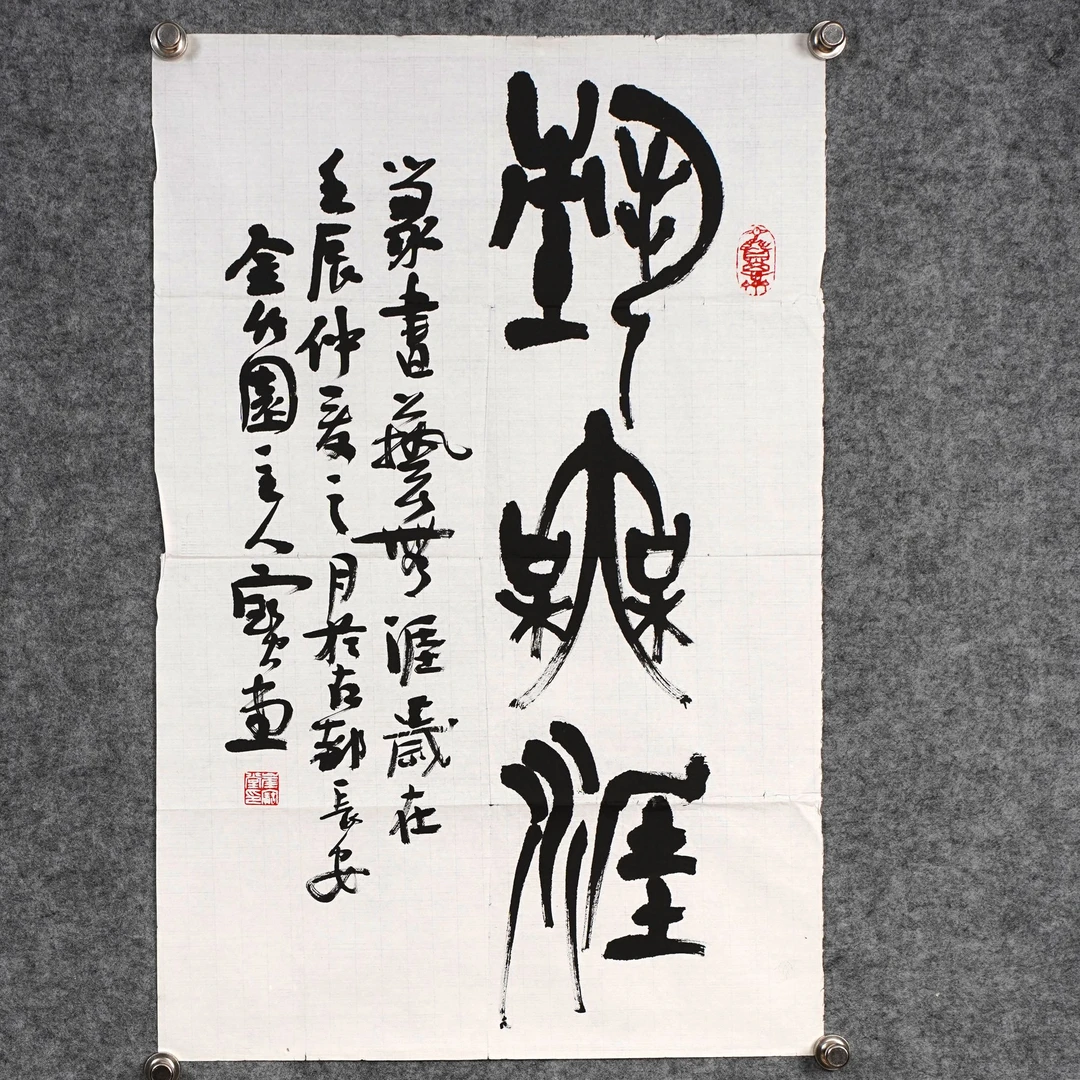 藝無涯
篆書藝無涯歲在
壬辰仲夏之月於古都長安
金竹園主人寶堂